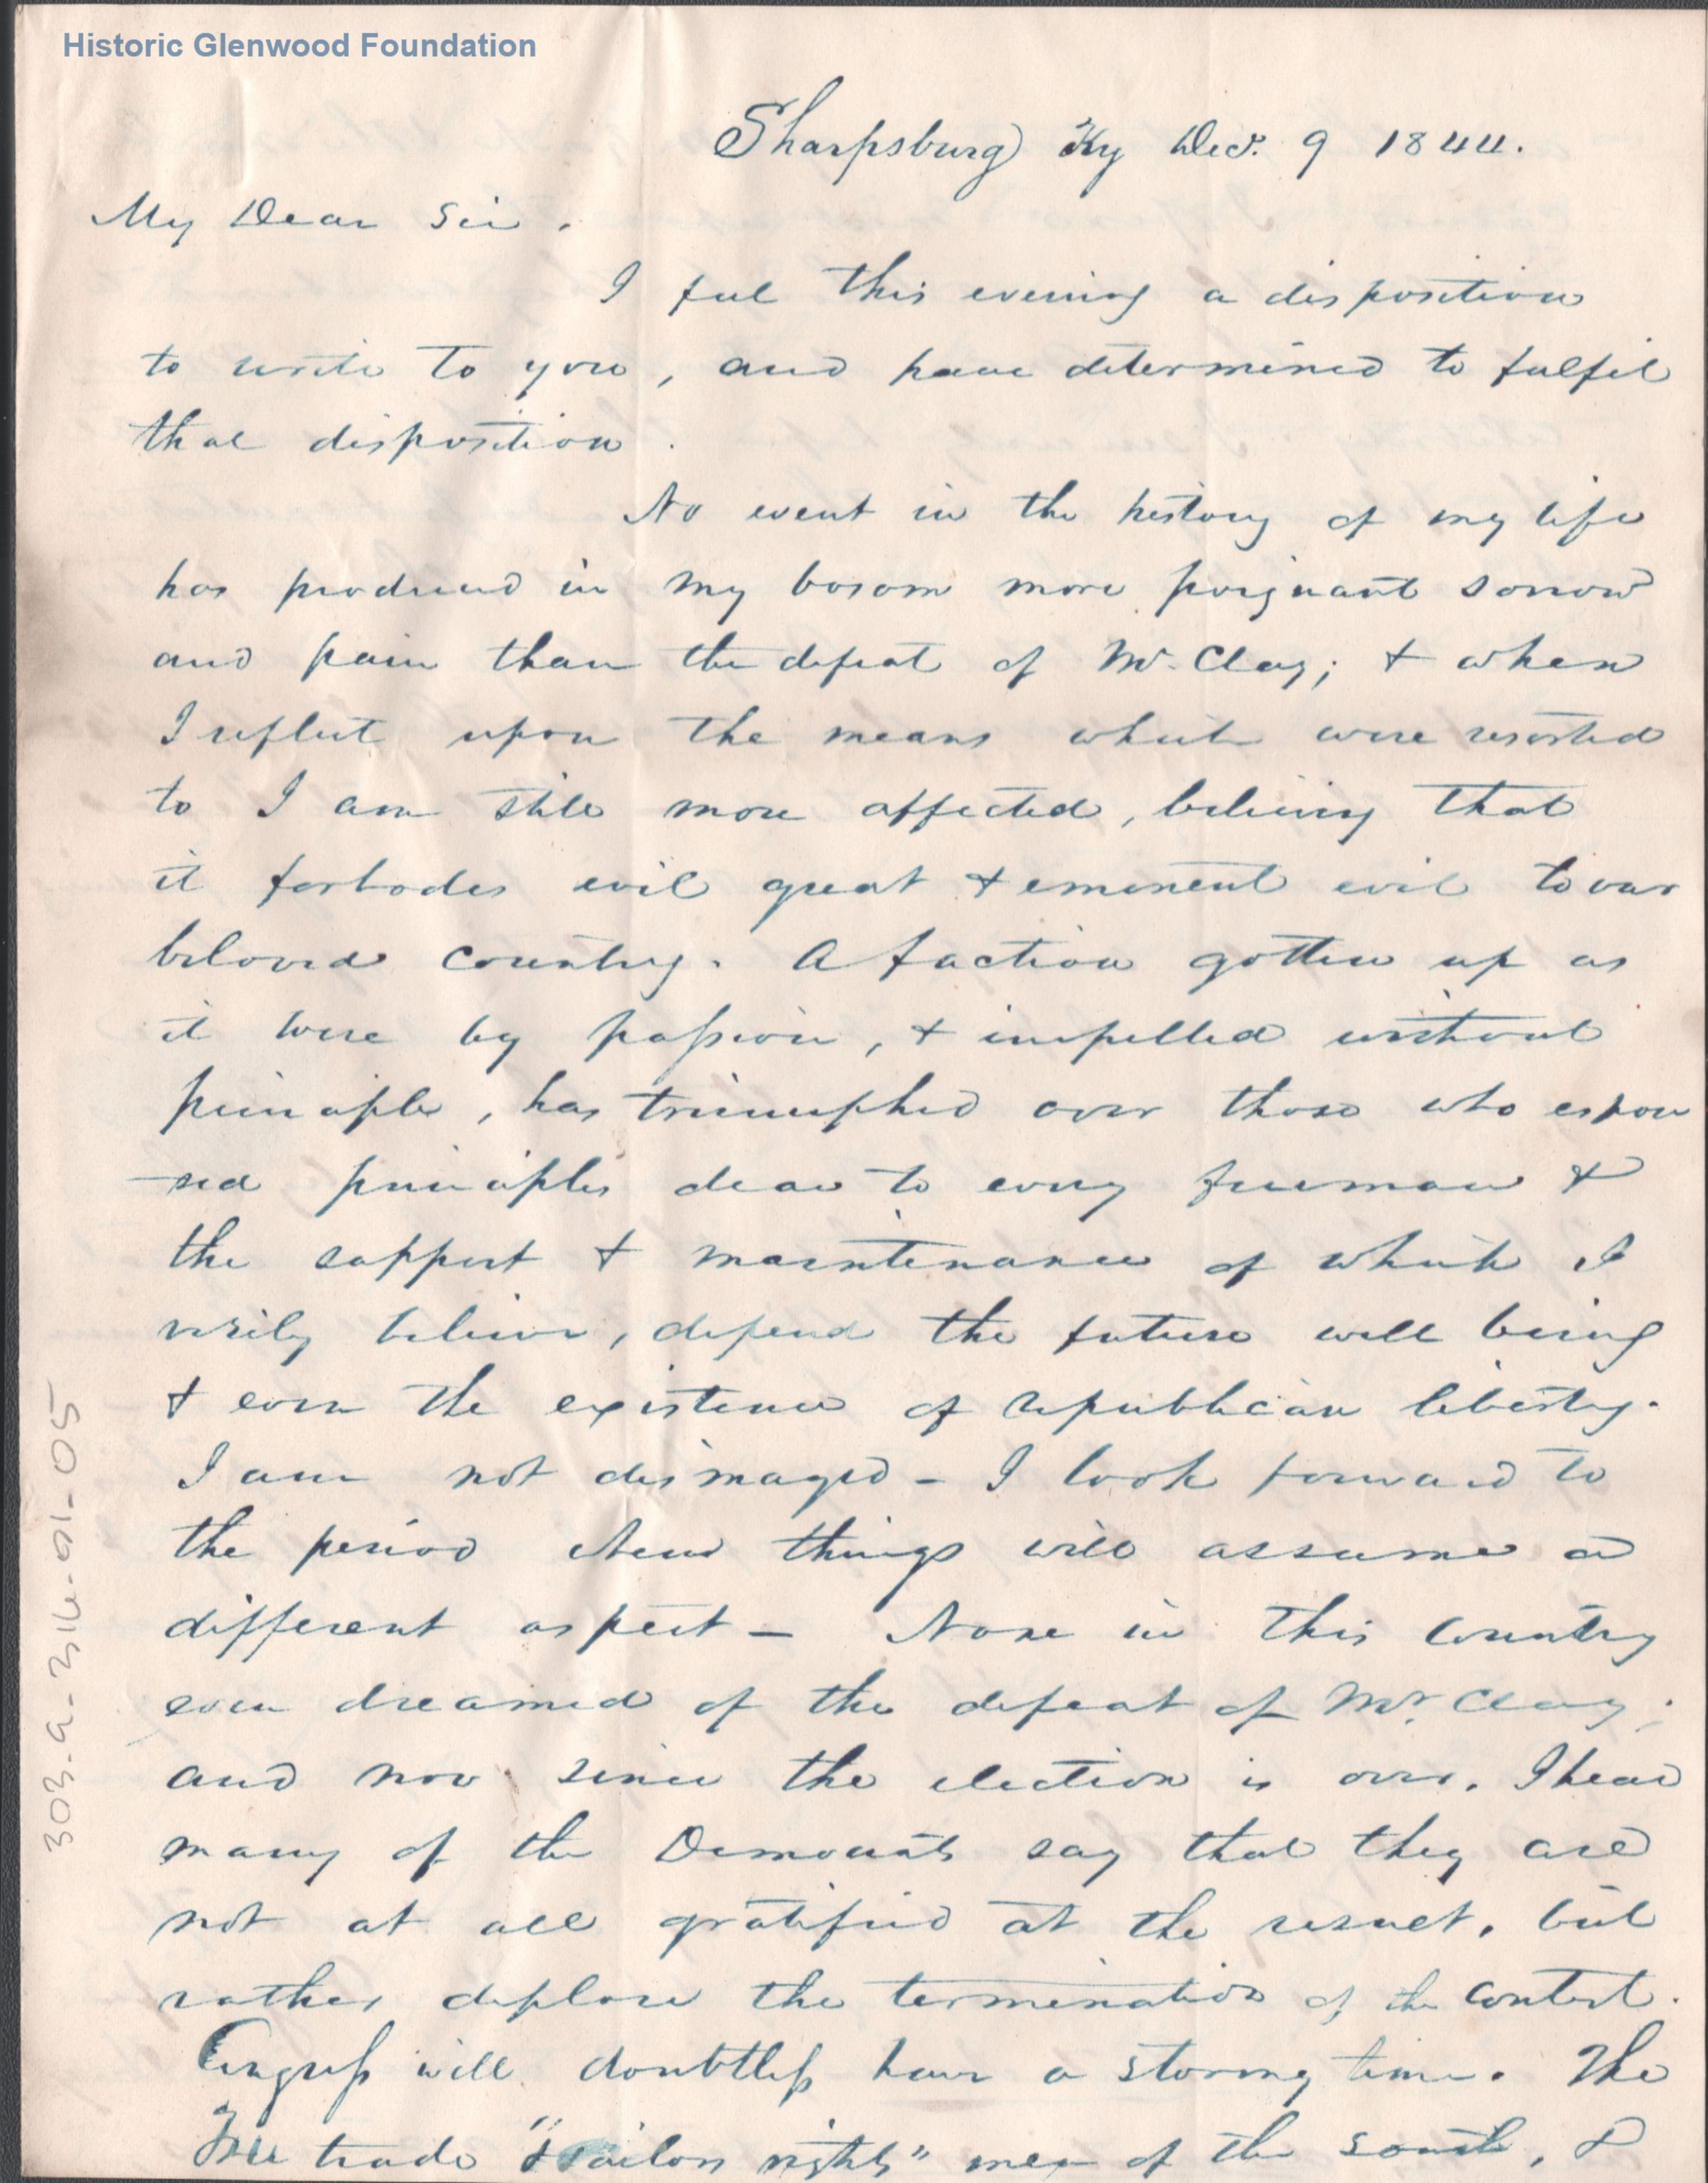 Historic Glenwood Foundation
Sharpsburg Ky Dec. 9 1844.
My Dear Sir.
I feel this evening a disposition
to write to you, and have determined to fulfil
that disposition.
No event in the history of my life
has produced in my bosom more poignant sorrow
and pain than the defeat of Mr. Clay; & when
I reflect upon the means which were resorted
to I am still more affected, believing that
it forbodes evil great & eminent evil to our
beloved country. A faction gotten up as
it were by passion, & impelled without
principle, has triumphed over those who espou
-sed principles dear to every freeman &
the support & maintenance of which I
verily believe, depend the future well being
& even the existence of republican liberty.
I am not dismayed - I look forward to
the period when things will assume a
different aspect - None in this country
even dreamed of the defeat of Mr. Clay;
and now since the election is over, I hear
many of the Democrats say that they are
not at all gratified at the result, but
rather deplore the termination of the contest.
Congress will doubtless have a stormy time. The
Free trade "& Sailors rights" men of the South, &
303-9-316-01-05